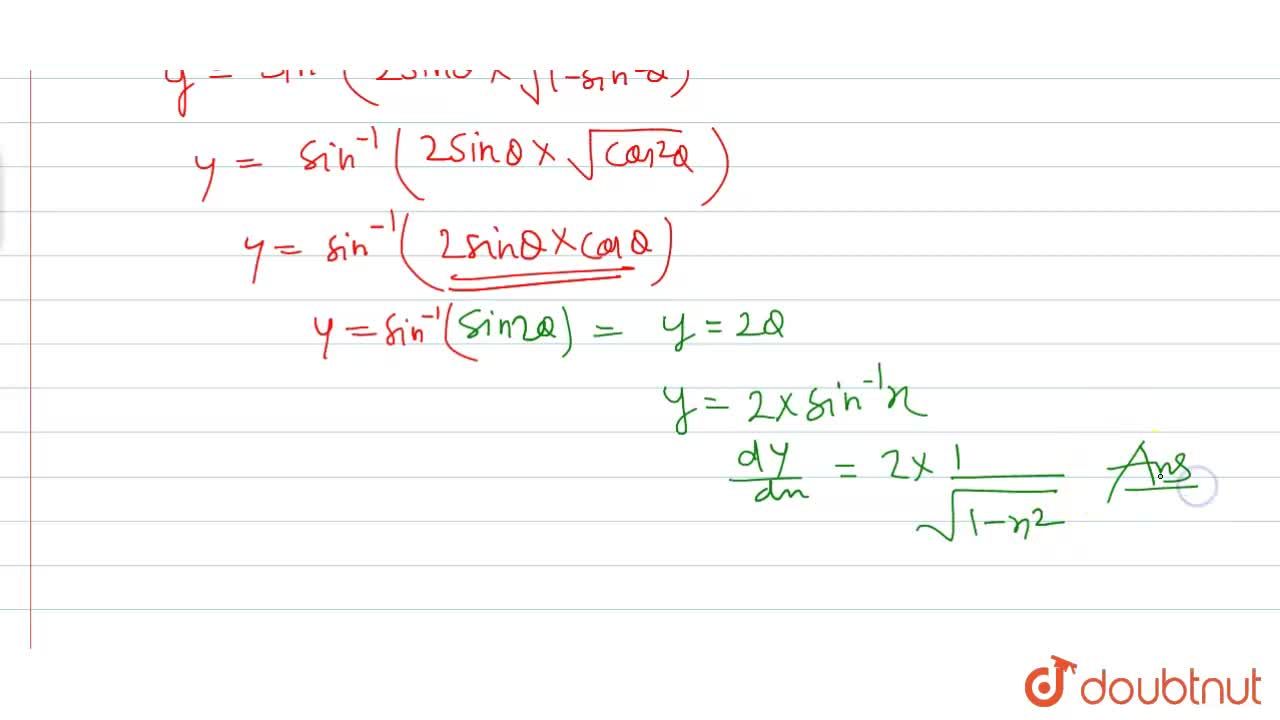 y = sin⁻¹(2sinθ × √(1-sin²θ))
y = sin⁻¹(2sinθ × √(cos²θ))
y = sin⁻¹(2sinθ × cosθ)
y = sin⁻¹(sin2θ) = y = 2θ
y = 2 × sin⁻¹x
dy/dx = 2 × 1/√(1-x²) Ans
doubtnut